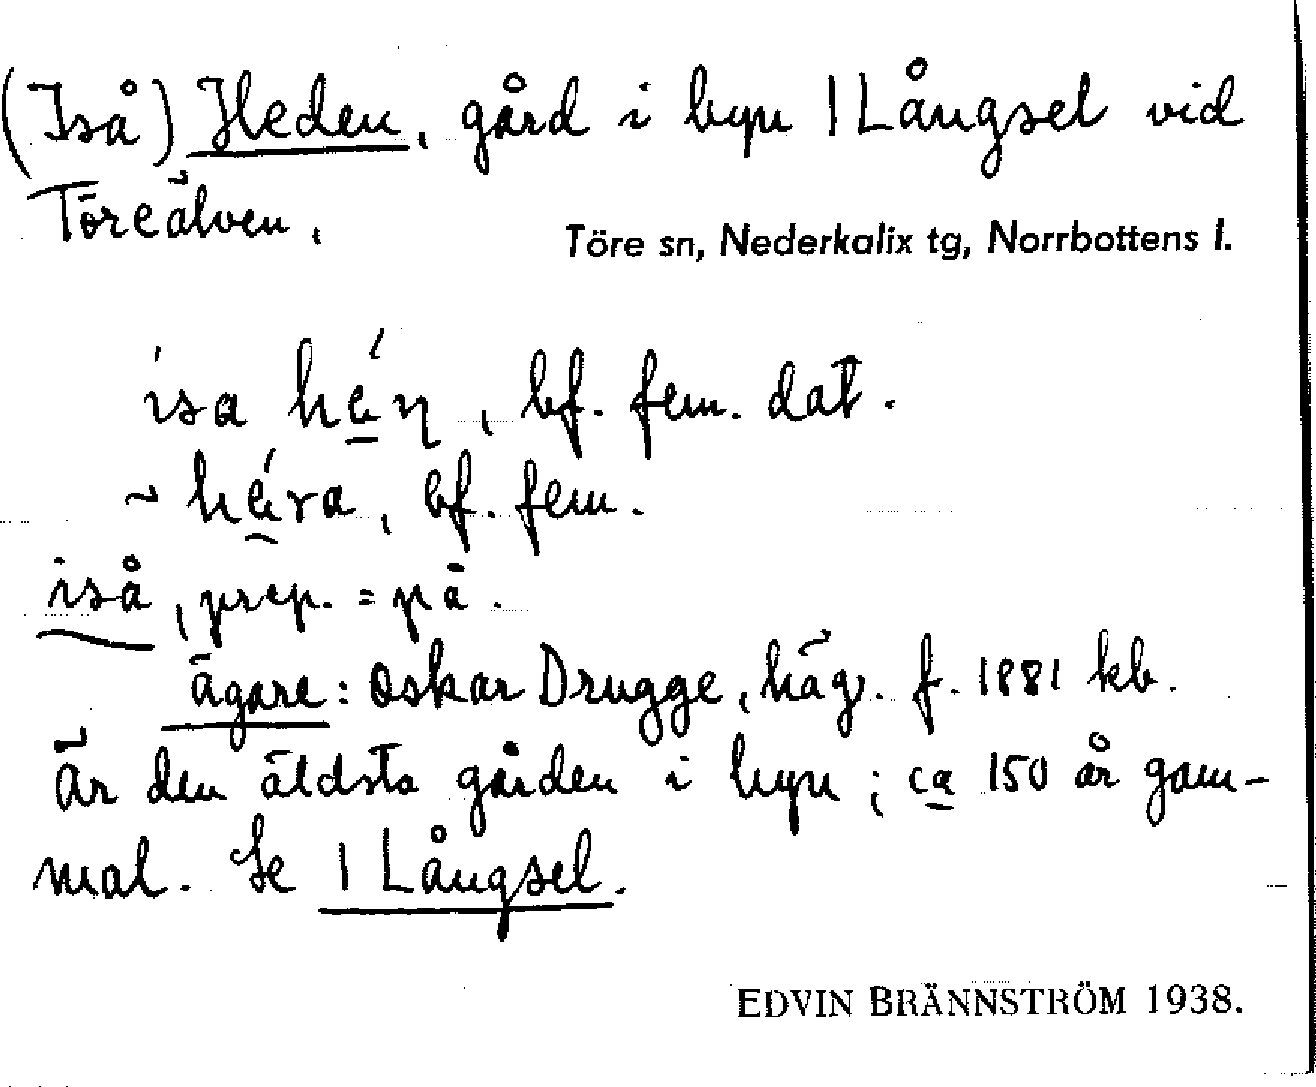 (Iså) Heden, gård i byn 1 Långsel vid
Töreälven.
Töre sn, Nederkalix tg, Norrbottens l.
bf. fem. dat.
bf. fem.
iså, prep. = på.
ägare: Oskar Drugge, häg. f. 1881 kb.
Är den äldsta gården i byn; ca 150 år gam-
mal. Se 1 Långsel.
EDVIN BRÄNNSTRÖM 1938.